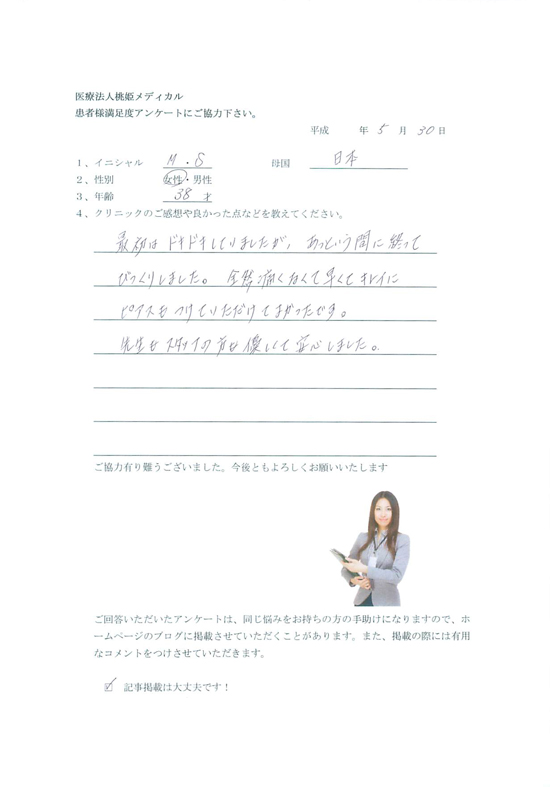 医療法人桃姫メディカル
患者様満足度アンケートにご協力下さい。
平成 年 5 月 30 日
1、イニシャル M・S 母国 日本
2、性別 女性・男性
3、年齢 38 才
4、クリニックのご感想や良かった点などを教えてください。
最初は ドキドキしていましたが、あっという間に終って
びっくりしました。 全然痛くなくて早くてキレイに
ピアスを つけていただけて よかったです。
先生も スタッフの方も 優しくて 安心しました。
ご協力有り難うございました。今後ともよろしくお願いいたします
ご回答いただいたアンケートは、同じ悩みをお持ちの方の手助けになりますので、ホ
ームページのブログに掲載させていただくことがあります。また、掲載の際には有用
なコメントをつけさせていただきます。
☑ 記事掲載は大丈夫です！